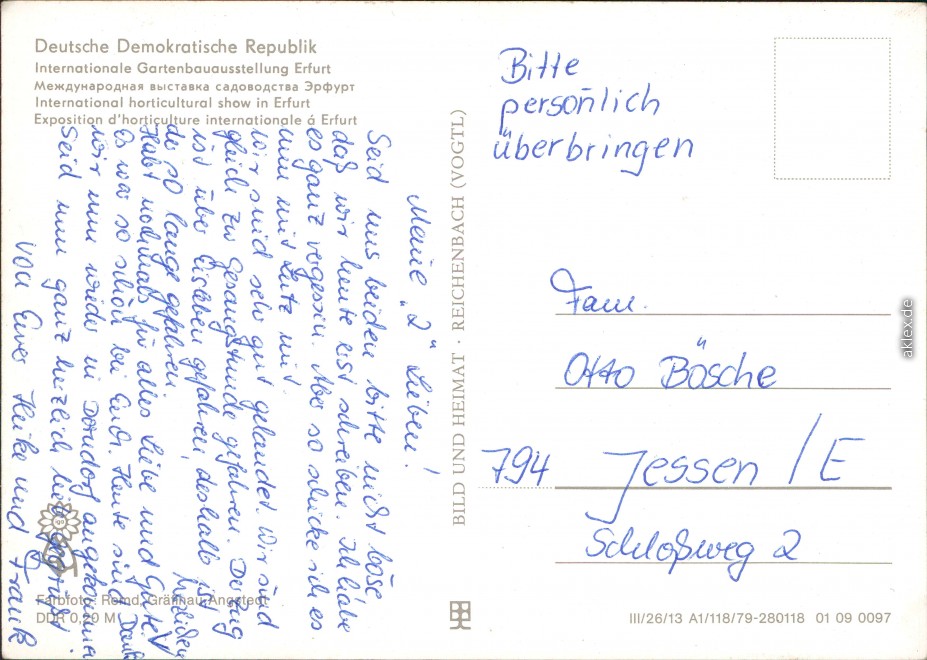 Deutsche Demokratische Republik
Internationale Gartenbauausstellung Erfurt
Международная выставка садоводства Эрфурт
International horticultural show in Erfurt
Exposition d'horticulture internationale á Erfurt
Meine „2" Lieben!
Seid uns beiden bitte nicht böse
daß wir heute erst schreiben. Ich habe
es ganz vergessen. Aber so schicke ich es
nun mit mit.
Wir sind sehr gut gelandet. Wir sind
gleich zur Gesangstunde gefahren. Der Zug
ist über Eisleben gefahren, deshalb ist
der so lange gefahren.
Habt nochmals für alles Liebe und Gute
Es war so schön bei Euch. Heute sind
wir nun wieder in Dorndorf angekommen
Seid nun ganz herzlich lieb gegrüßt
von Eurer Heike und Frank
Farbfoto: Remd, Gräfinau-Angstedt
DDR 0,20 M
BILD UND HEIMAT · REICHENBACH (VOGTL)
Bitte
persönlich
überbringen
Fam.
Otto Bösche
794 Jessen / E
Schloßweg 2
III/26/13 A1/118/79-280118 01 09 0097
aklex.de